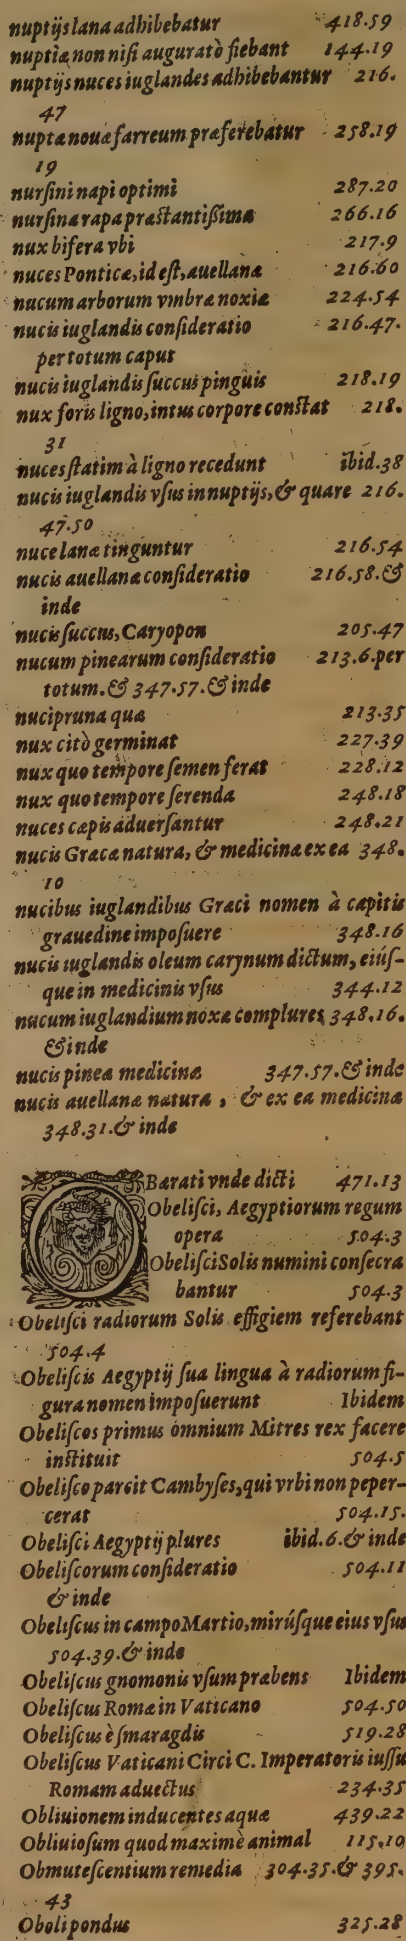 nuptijs lana adhibebatur 418.59
nuptiæ non nisi auguratò fiebant 144.19
nuptijs nuces iuglandes adhibebantur 216.
47
nuptæ nouæ farreum præferebatur 258.19
19
nursini napi optimi 287.20
nursina rapa præstantißima 266.16
nux bifera vbi 217.9
nuces Ponticæ, id est, auellanæ 216.60
nucum arborum vmbræ noxiæ 224.54
nucis iuglandis consideratio 216.47.
per totum caput
nucis iuglandis succus pinguis 218.19
nux foris ligno, intus corpore constat 218.
31
nuces statim à ligno recedunt ibid.38
nucis iuglandis vsus in nuptijs, & quare 216.
47.50
nuce lanæ tinguntur 216.54
nucis auellanæ consideratio 216.58.&
inde
nucis succus, Caryopon 205.47
nucum pinearum consideratio 213.6.per
totum. & 347.57. & inde
nucipruna quæ 213.35
nux citò germinat 227.39
nux quo tempore semen ferat 228.12
nux quo tempore serenda 248.18
nuces cæpis aduersantur 248.21
nucis Græcæ natura, & medicinæ ex ea 348.
10
nucibus iuglandibus Græci nomen à capitis
grauedine imposuere 348.16
nucis iuglandis oleum carynum dictum, eiús-
que in medicinis vsus 344.12
nucum iuglandium noxæ complures 348.16.
& inde
nucis pineæ medicinæ 347.57. & inde
nucis auellanæ natura, & ex ea medicinæ
348.31. & inde
OBærati vnde dicti 471.13
Obelisci, Aegyptiorum regum
opera 504.3
Obelisci Solis numini consecra
bantur 504.3
Obelisci radiorum Solis effigiem referebant
504.4
Obeliscis Aegyptij sua lingua à radiorum fi-
gura nomen imposuerunt Ibidem
Obeliscos primus omnium Mitres rex facere
instituit 504.5
Obelisco parcit Cambyses, qui vrbi non peper-
cerat 504.15.
Obelisci Aegyptij plures ibid.6. & inde
Obeliscorum consideratio 504.11
& inde
Obeliscus in campo Martio, mirúsque eius vsus
504.39. & inde
Obeliscus gnomonis vsum præbens Ibidem
Obeliscus Romæ in Vaticano 504.50
Obeliscus è smaragdis 519.28
Obeliscus Vaticani Circi C. Imperatoris iussu
Romam aduectus 234.35
Obliuionem inducentes aquæ 439.22
Obliuiosum quod maximè animal 115.10
Obmutescentium remedia 304.35. & 395.
43
Oboli pondus 325.28